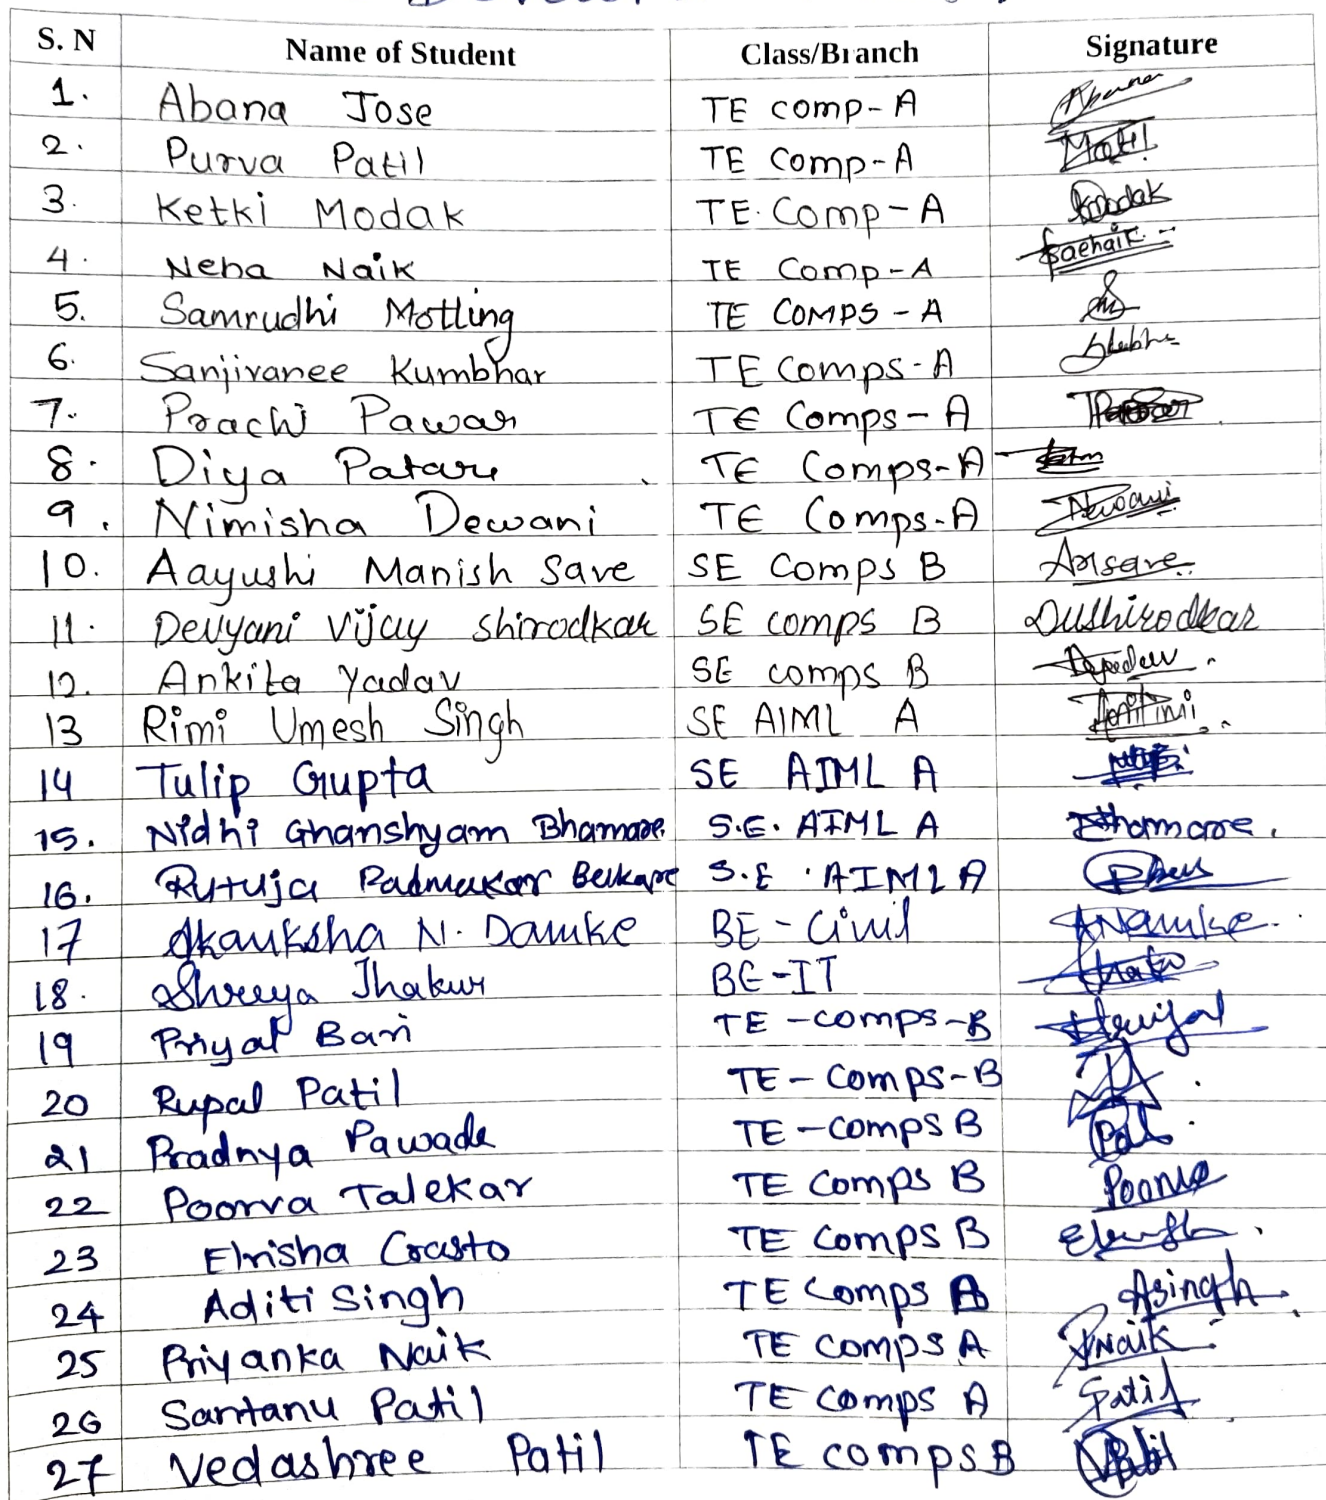 S. N Name of Student Class/Branch Signature
1. Abana Jose TE comp-A
2. Purva Patil TE comp-A Patil
3. Ketki Modak TE. Comp-A Modak
4. Neha Naik TE Comp-A
5. Samrudhi Motling TE COMPS - A
6. Sanjivanee Kumbhar TE Comps-A
7. Prachi Pawar TE Comps-A
8. Diya Patare TE Comps-A
9. Nimisha Dewani TE Comps-A Dewani
10. Aayushi Manish Save SE Comps B Amsave
11. Devyani Vijay Shirodkar SE comps B DVShirodkar
12. Ankita Yadav SE comps B
13 Rimi Umesh Singh SE AIML A
14 Tulip Gupta SE AIML A
15. Nidhi Ghanshyam Bhamare S.E. AIML A Bhamare.
16. Rutuja Padmakar S.E. AIML A
17 Akanksha N. Damke BE - Civil ANDamke.
18. Shreya Thakur BE-IT
19 Priyal Bari TE-comps-B Priyal
20 Rupal Patil TE-Comps-B
21 Pradnya Pawade TE-comps B
22 Poorva Talekar TE Comps B Poorva
23 Elrisha Crasto TE Comps B
24 Aditi Singh TE Comps Asingh
25 Priyanka Naik TE comps A PNaik
26 Santanu Patil TE comps A Patil
27 Vedashree Patil TE comps B